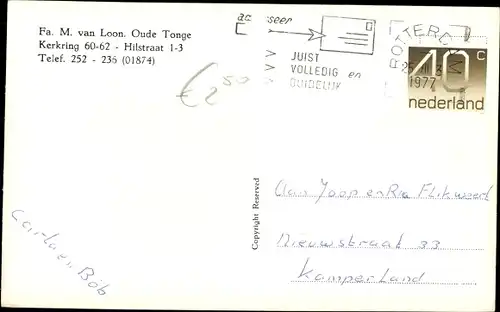 Fa. M. van Loon. Oude Tonge
Kerkring 60-62 - Hilstraat 1-3
Telef. 252 - 236 (01874)
adresseer
JUIST
VOLLEDIG en
DUIDELIJK
ROTTERDAM
1977
40c
nederland
€ 2 50
Copyright Reserved
Aan Joop en Ria Flikweert
Nieuwstraat 33
Kamperland
Bob